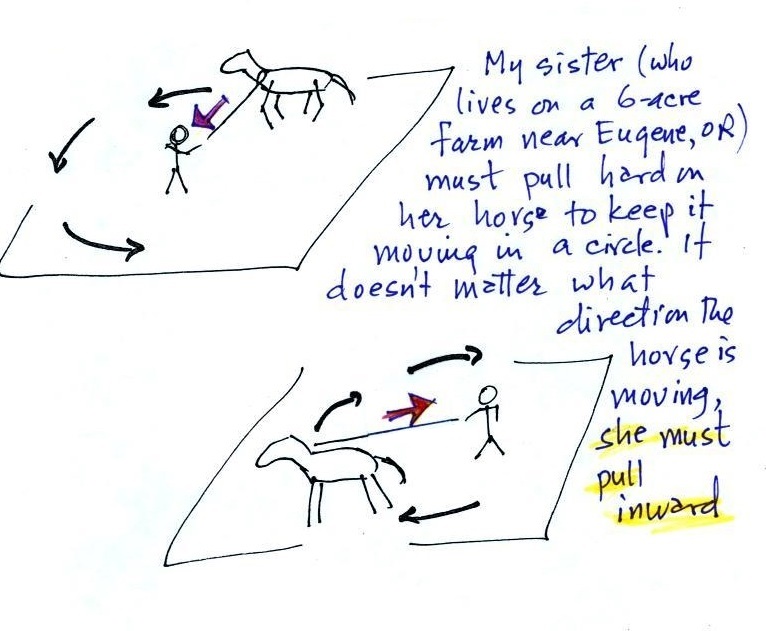 My sister (who
lives on a 6-acre
farm near Eugene, OR)
must pull hard on
her horse to keep it
moving in a circle. It
doesn't matter what
direction the
horse is
moving,
she must
pull
inward